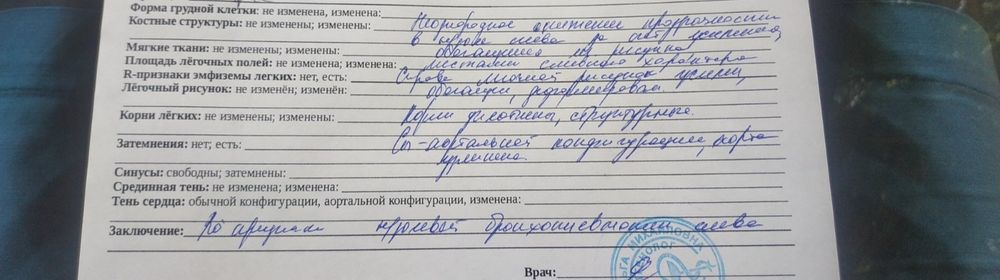 Форма грудной клетки: не изменена, изменена:
Костные структуры: не изменены; изменены: Неоднородное снижение прозрачности
в нижн слева за счет усиления,
Мягкие ткани: не изменены; изменены: обогащения л рисунка
Площадь лёгочных полей: не изменена; изменена: местами сливного характера
R-признаки эмфиземы легких: нет, есть: Справа легочной рисунок усилен,
Лёгочный рисунок: не изменён; изменён: обогащен, деформирован.
Корни лёгких: не изменены; изменены: Корни фиброзны, структурные.
Затемнения: нет; есть: Cь - аортальной конфигурации, аорта
удлинена.
Синусы: свободны; затемнены:
Срединная тень: не изменена; изменена:
Тень сердца: обычной конфигурации, аортальной конфигурации, изменена:
Заключение: По признаки бронхопневмонии слева
Врач:
МИХАЙЛОВНА